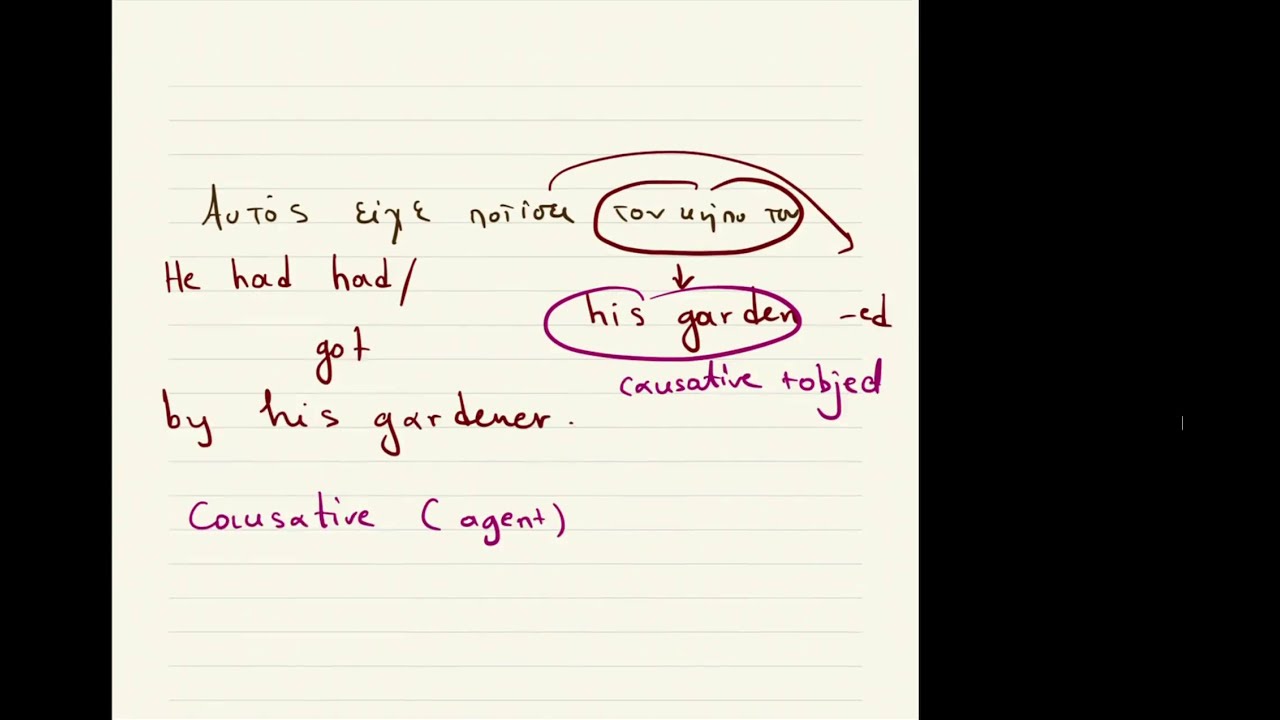 Αυτός είχε ποτίσει τον κήπο του
He had had/ his garden -ed
got
causative +object
by his gardener.
Causative (agent)